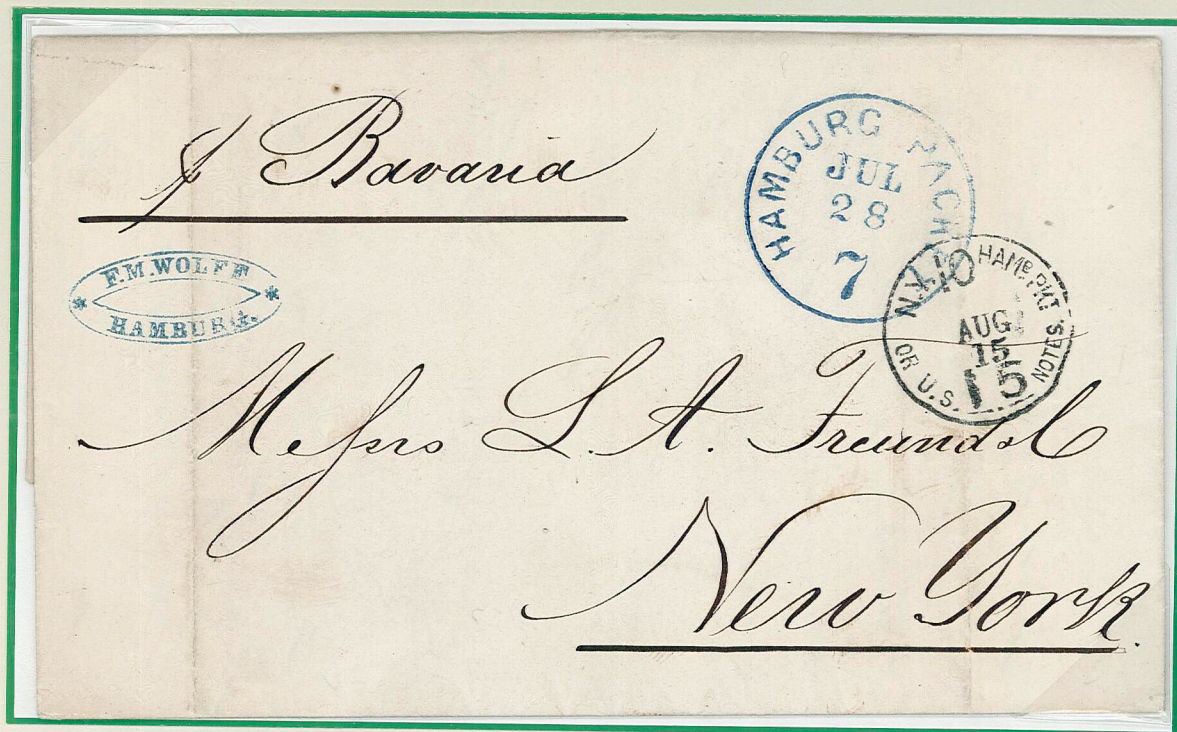 p Bavaria
HAMBURG NACH
JUL
28
7
F.M. WOLFF
HAMBURG.
N.Y. 10 HAMB. PKT
AUG
15
15
OR U.S. NOTES.
Messrs L. A. Freund &
New York.